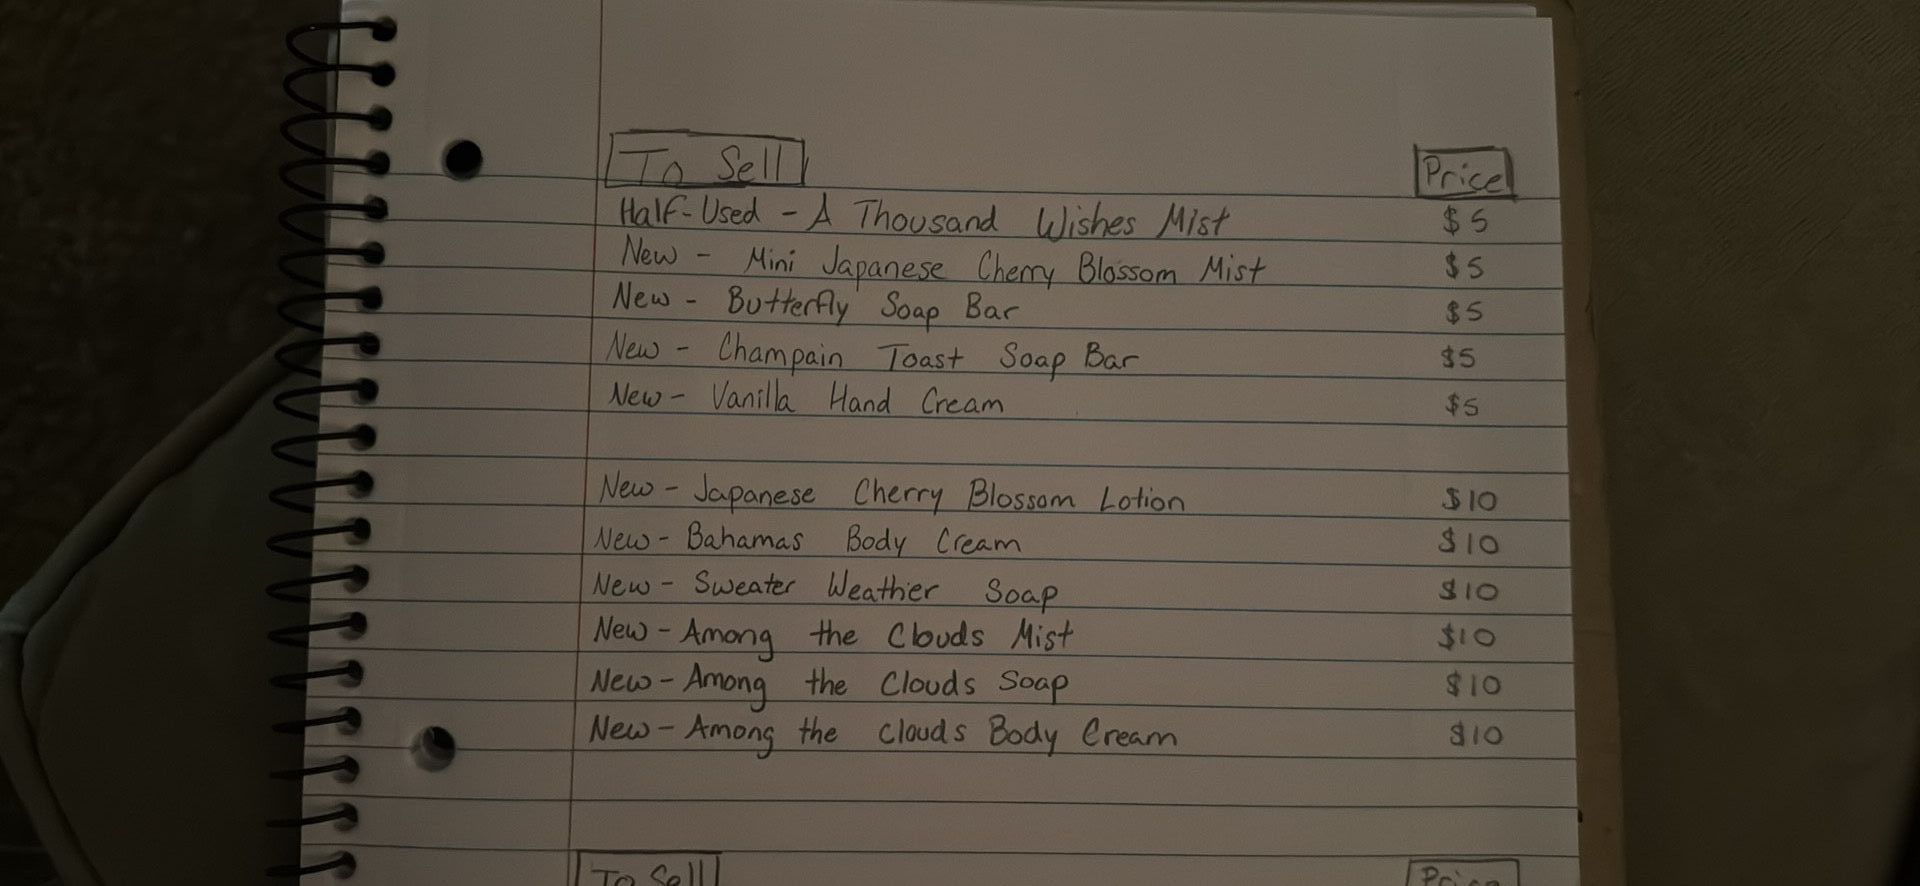 To Sell Price
Half-Used - A Thousand Wishes Mist $5
New - Mini Japanese Cherry Blossom Mist $5
New - Butterfly Soap Bar $5
New - Champain Toast Soap Bar $5
New - Vanilla Hand Cream $5
New - Japanese Cherry Blossom Lotion $10
New - Bahamas Body Cream $10
New - Sweater Weather Soap $10
New - Among the Clouds Mist $10
New - Among the Clouds Soap $10
New - Among the Clouds Body Cream $10
To Sell Price